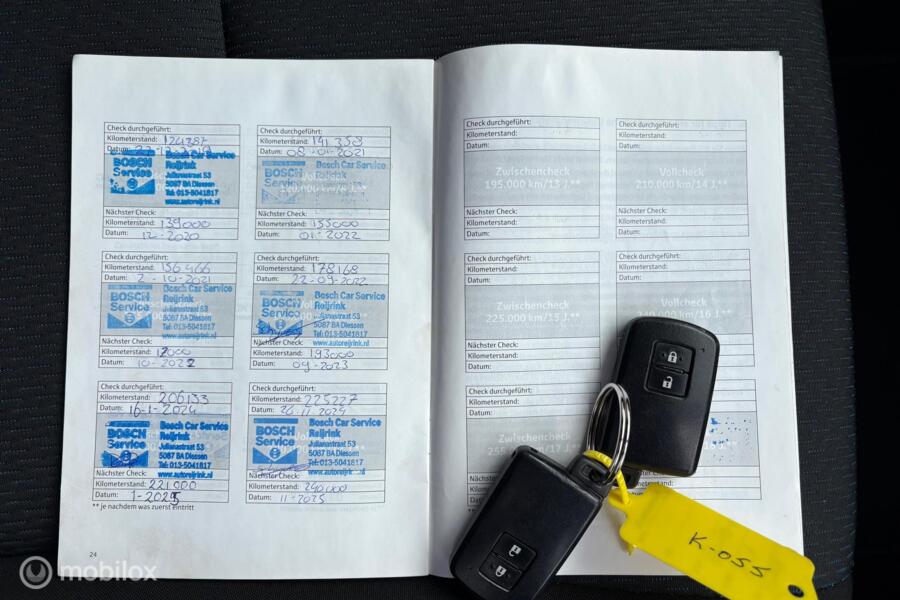 Check durchgeführt:
Kilometerstand: 124387
Datum:
BOSCH Service
Bosch Car Service
Reijrink
Julianastraat 53
5087 BA Diessen
Tel: 013-5041817
www.autoreijrink.nl
Nächster Check:
Kilometerstand: 139000
Datum: 12-2020
Check durchgeführt:
Kilometerstand: 141 358
Datum: 08-01-2021
BOSCH Service
Bosch Car Service
Reijrink
Julianastraat 53
5087 BA Diessen
Tel: 013-5041817
www.autoreijrink.nl
Nächster Check:
Kilometerstand: 155000
Datum: 01-2022
Check durchgeführt:
Kilometerstand: 156466
Datum: 2-10-2021
BOSCH Service
Bosch Car Service
Reijrink
Julianastraat 53
5087 BA Diessen
Tel: 013-5041817
www.autoreijrink.nl
Nächster Check:
Kilometerstand:
Datum: 10-2022
Check durchgeführt:
Kilometerstand: 178168
Datum: 22-09-2022
BOSCH Service
Bosch Car Service
Reijrink
Julianastraat 53
5087 BA Diessen
Tel: 013-5041817
www.autoreijrink.nl
Nächster Check:
Kilometerstand: 193000
Datum: 09-2023
Check durchgeführt:
Kilometerstand: 206133
Datum: 16-1-2024
BOSCH Service
Bosch Car Service
Reijrink
Julianastraat 53
5087 BA Diessen
Tel: 013-5041817
www.autoreijrink.nl
Nächster Check:
Kilometerstand: 221000
Datum: 1-2025
Check durchgeführt:
Kilometerstand: 225227
Datum: 26-11-2024
BOSCH Service
Bosch Car Service
Reijrink
Julianastraat 53
5087 BA Diessen
Tel: 013-5041817
www.autoreijrink.nl
Nächster Check:
Kilometerstand: 240000
Datum: 11-2025
** je nachdem was zuerst eintritt
24
Check durchgeführt:
Kilometerstand:
Datum:
Zwischencheck
195.000 km/13 J.**
Nächster Check:
Kilometerstand:
Datum:
Check durchgeführt:
Kilometerstand:
Datum:
Vollcheck
210.000 km/14 J.**
Nächster Check:
Kilometerstand:
Datum:
Check durchgeführt:
Kilometerstand:
Datum:
Zwischencheck
225.000 km/15 J.**
Nächster Check:
Kilometerstand:
Datum:
Check durchgeführt:
Kilometerstand:
Datum:
Vollcheck
240.000 km/16 J.**
Check durchgeführt:
Kilometerstand:
Datum:
Zwischencheck
Nächster Check:
Kilometerstand:
Datum:
K-055
mobilox